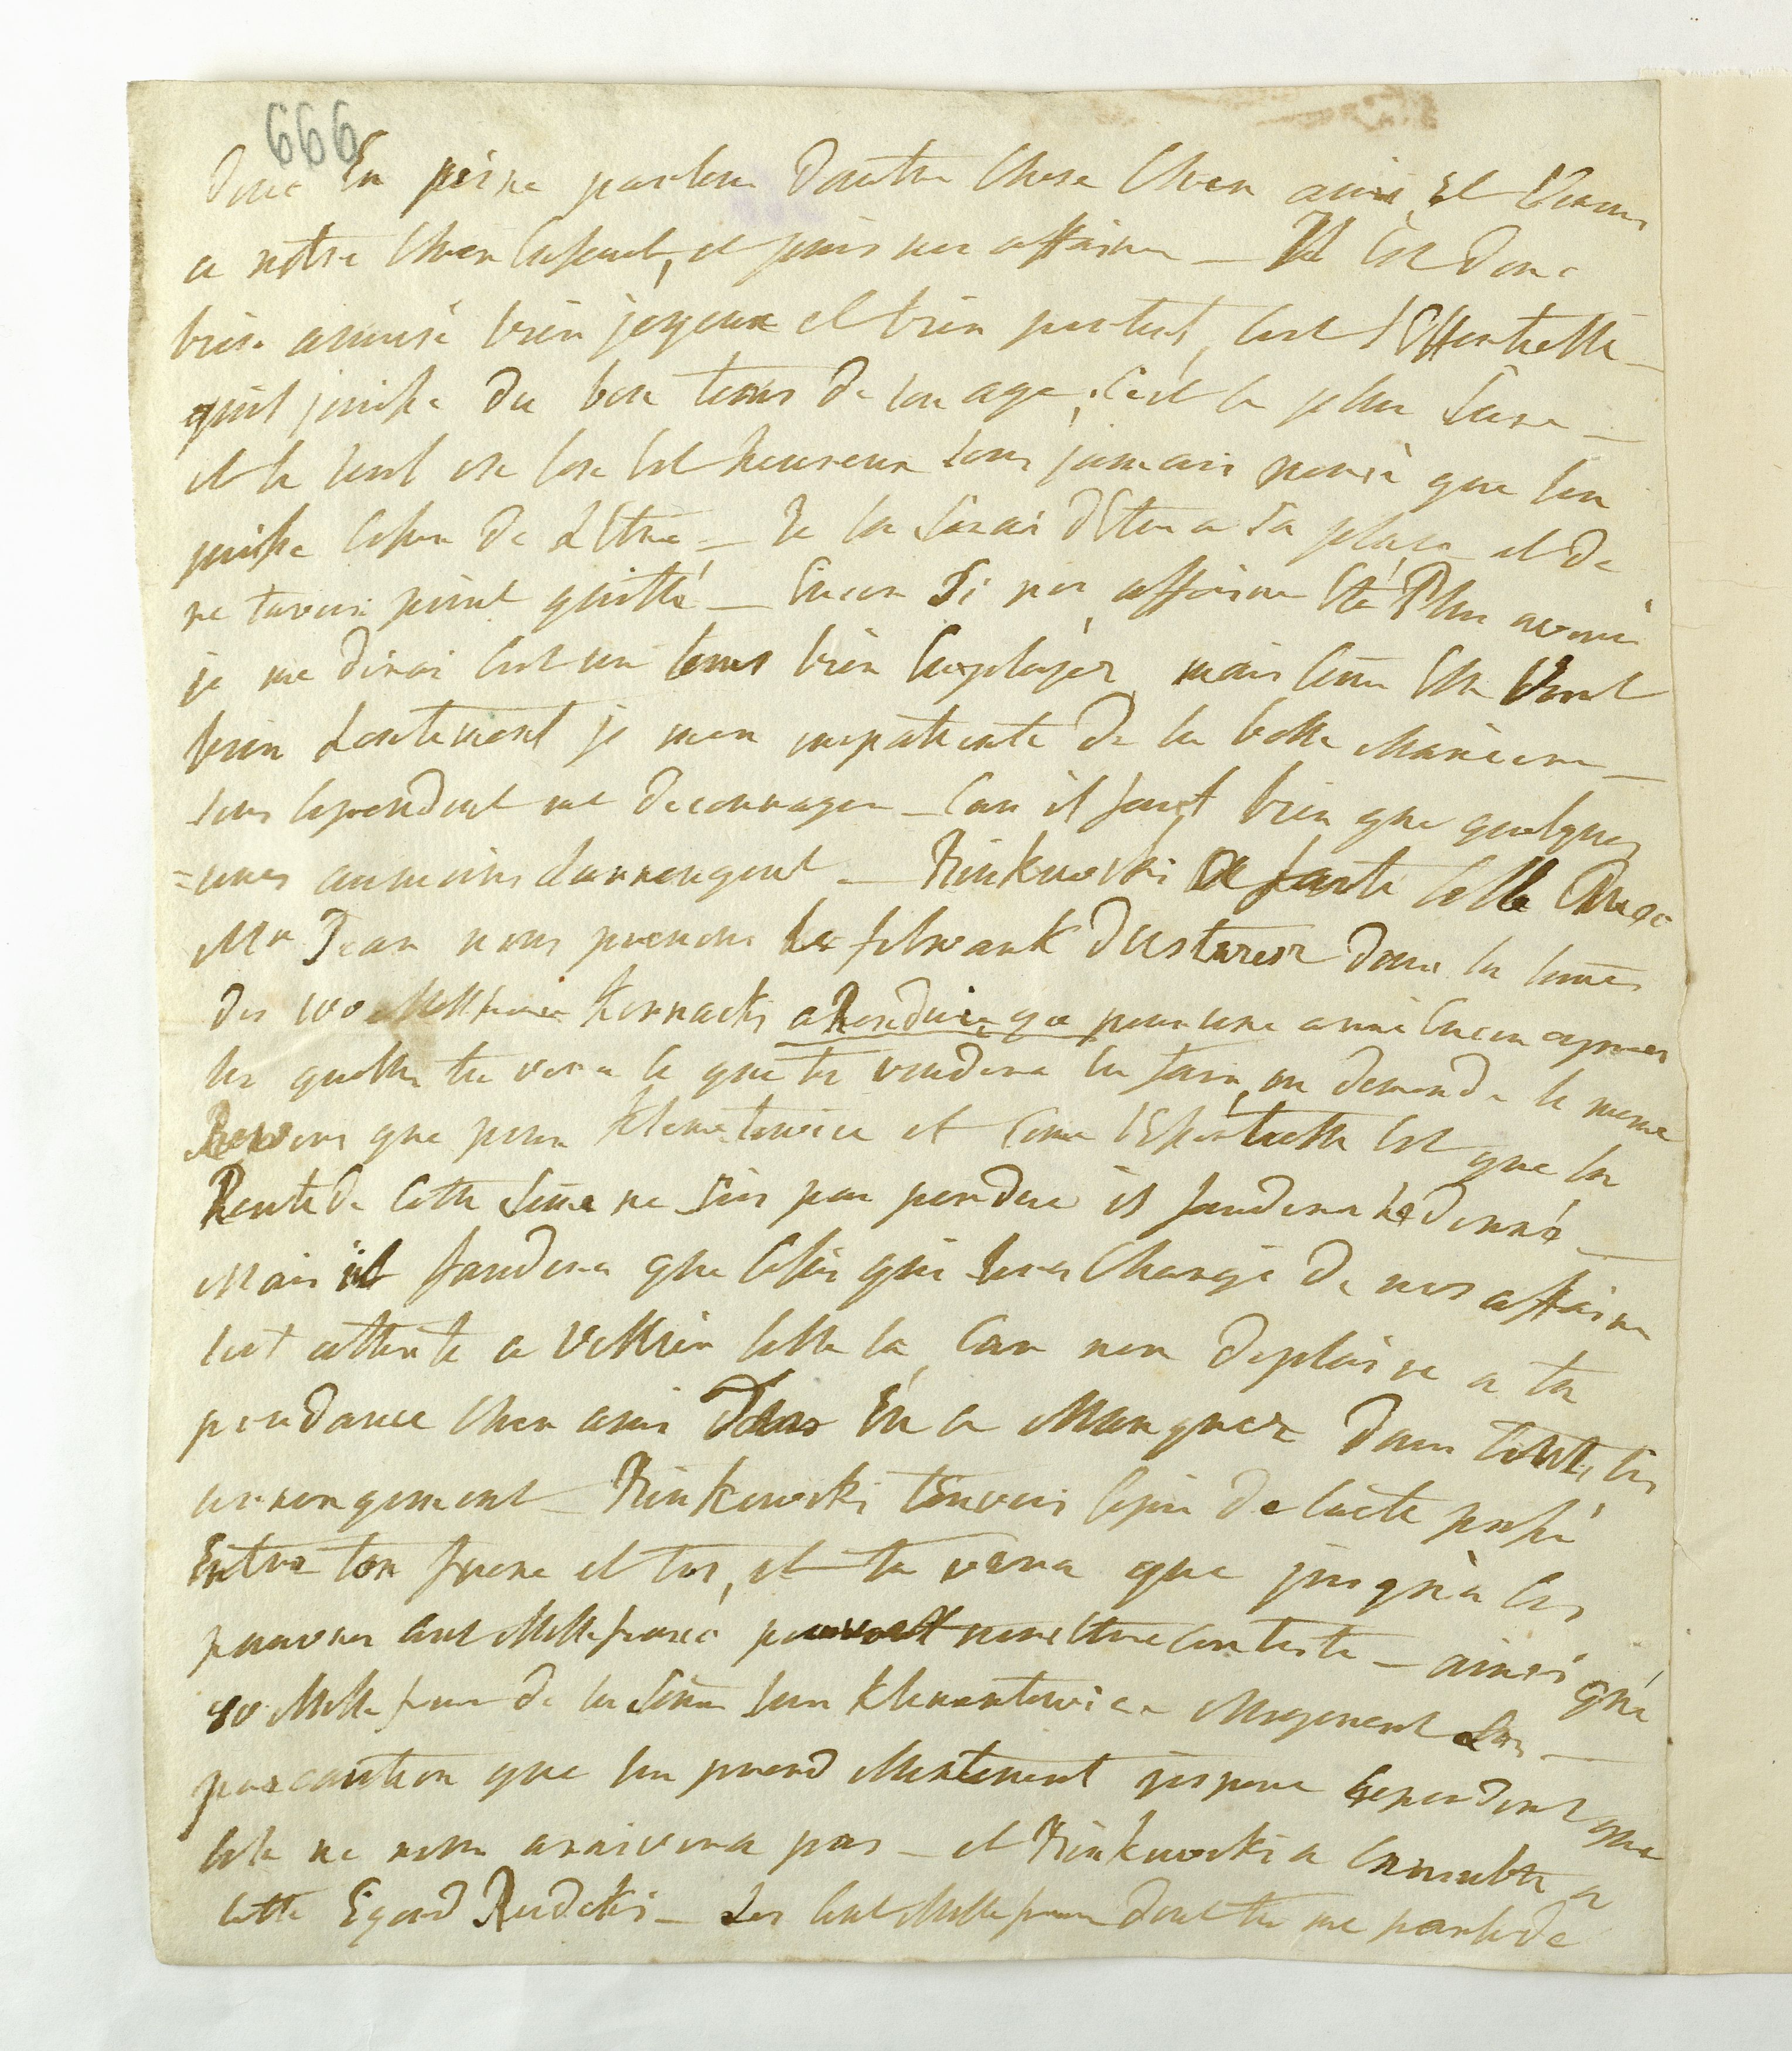 666
donc En peine parlons dautre Chose Cher ami, Et Venons
a notre Cher Enfant, et puis nos affaires — Il Est donc
bien amusé bien joyeux et bien portant, cest l'Essentielle —
quil jouisse du bon tems de son age, c'est le plus Sure —
et le seul ou lon Est heureux sans jamais pensé que lon
puisse cesser de L'Etre — Je la serai d'Etre a sa place et de
ne tavoir point quitté — Encor Si nos affaires Eté Plus avancé
je me dirai cest un tems bien Employer, mais come Elle Vont
bien Lentement je men impatiente de la belle Maniere —
sans cependent me decourager — Car il faut bien que quelques
=unes aumoins sarrengent — Rinkuwski a faite celle Avec
Mr Jean nous prenons le folwark dUstrzesz dans la some
des 100 Mille francs Karnacki a Rendu que pour une anné Encor apres
les quelle tu vera ce que te vendera la faire, on demande le meme
Revers que pour Klematowice et come l'Essentielle Est que la
Rente de Cette Some ne sois pas perdue il faudera le donné —
Mais il faudera que Celui qui sera Chargé de nos affaires
soit attente a Veller celle la, Car non deplaise a ta
prudance Cher ami tu En a Manquer dans tout ces
arrengement — Rinkuwski tenvois copie de lacte passé
Entre ton frere et toi, et tu vera que jusqu'a ces
pauvres cent Mille francs peuvent nous Etre Conteste — ainsi que
80 Mille francs de la Some sur Klementowice Moyenent Les —
precaution que lon prend Mentenent jespere cependent que
cela ne nous arrivera pas — et Rinkuwski a Consulte a
cette Egard Rudzki — Les cent Mille francs dont tu me parle de